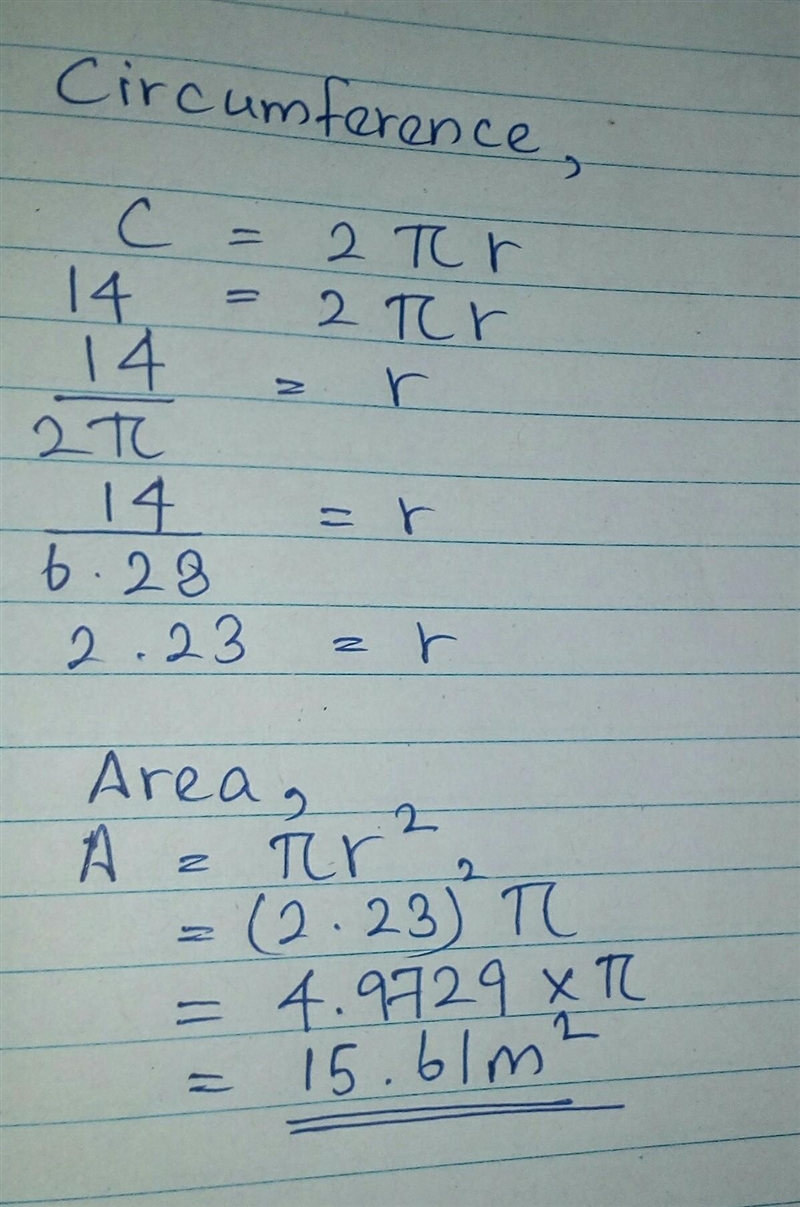 Circumference,
C = 2πr
14 = 2πr
14/2π = r
14/6.28 = r
2.23 = r
Area,
A = πr²
= (2.23)²π
= 4.9729 × π
= 15.61m²